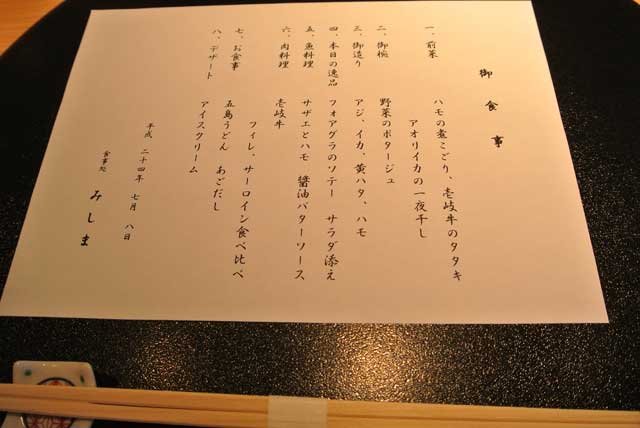 御食事
一、前菜 ハモの煮こごり、壱岐牛のタタキ
アオリイカの一夜干し
二、御椀 野菜のポタージュ
三、御造り アジ、イカ、黄ハタ、ハモ
四、本日の逸品 フォアグラのソテー サラダ添え
五、魚料理 サザエとハモ 醤油バターソース
六、肉料理 壱岐牛
フィレ、サーロイン食べ比べ
七、お食事 五島うどん あごだし
八、デザート アイスクリーム
平成 二十四年 七月 八日
食事処 みしま